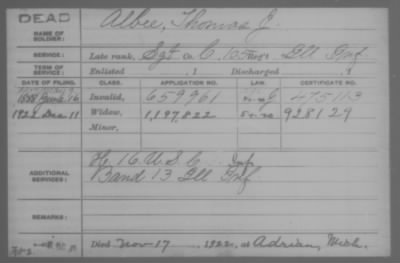 DEAD
Albee, Thomas J.
NAME OF SOLDIER:
SERVICE: Late rank, Sgt Co. C, 105 Reg't Ill Inf.
TERM OF SERVICE: Enlisted , 1 Discharged , 1
DATE OF FILING. CLASS. APPLICATION NO. LAW. CERTIFICATE NO.
1888 June 16 Invalid, 659961 475113
1922 Dec. 11 Widow, 1,197,822 928129
Minor,
ADDITIONAL SERVICES: H, 16 U.S.C. Inf
Band 13 Ill Inf.
REMARKS:
Died Nov-17, 1922, at Adrian, Mich.